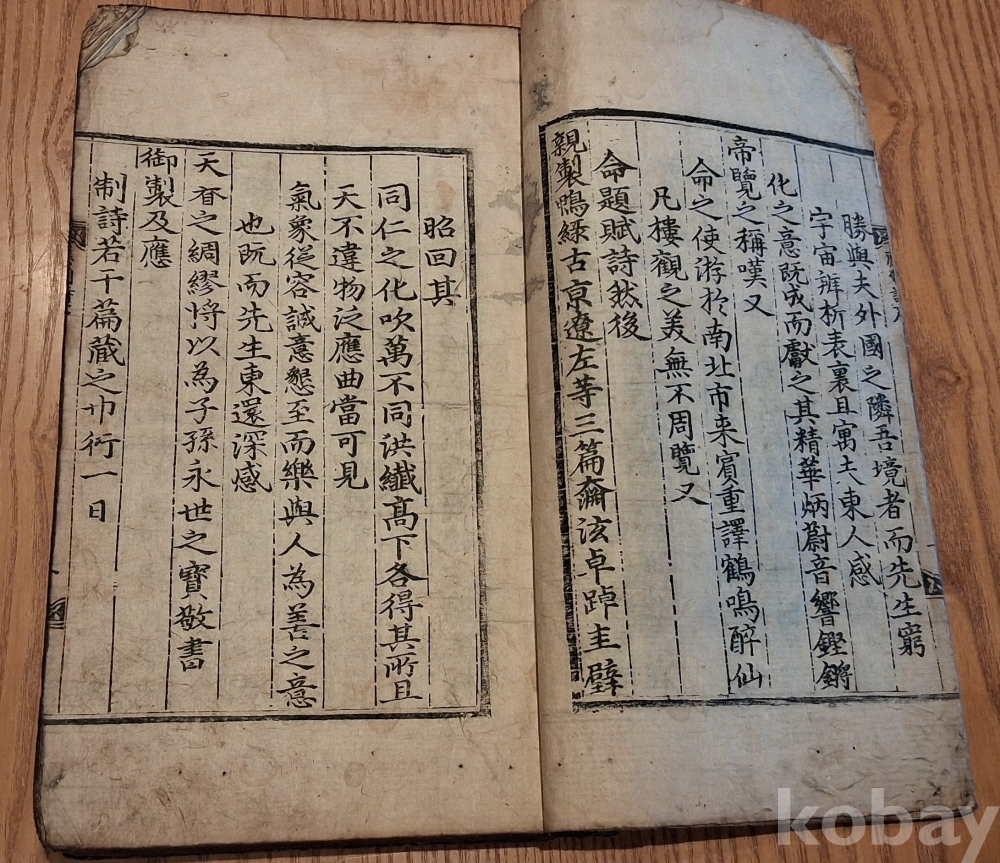 勝與夫外國之隣吾境者而先生窮
宇宙辨析表裏且寓士東人感
化之意旣成而獻之其精華炳蔚音響鏗鏘
帝覽之稱嘆又
命之使游於南北市來賓重譯鶴鳴醉仙
凡樓觀之美無不周覽又
命題賦詩然後
親製鴨綠古京遼左等三篇奫泫卓踔圭璧
昭回其
同仁之化吹萬不同洪纖高下各得其所且
天不違物泛應曲當可見
氣象從容誠意懇至而樂與人為善之意
也旣而先生東還深感
天眷之綢繆將以為子孫永世之寶敬書
御製及應
制詩若干篇藏之巾衍一日
kobay